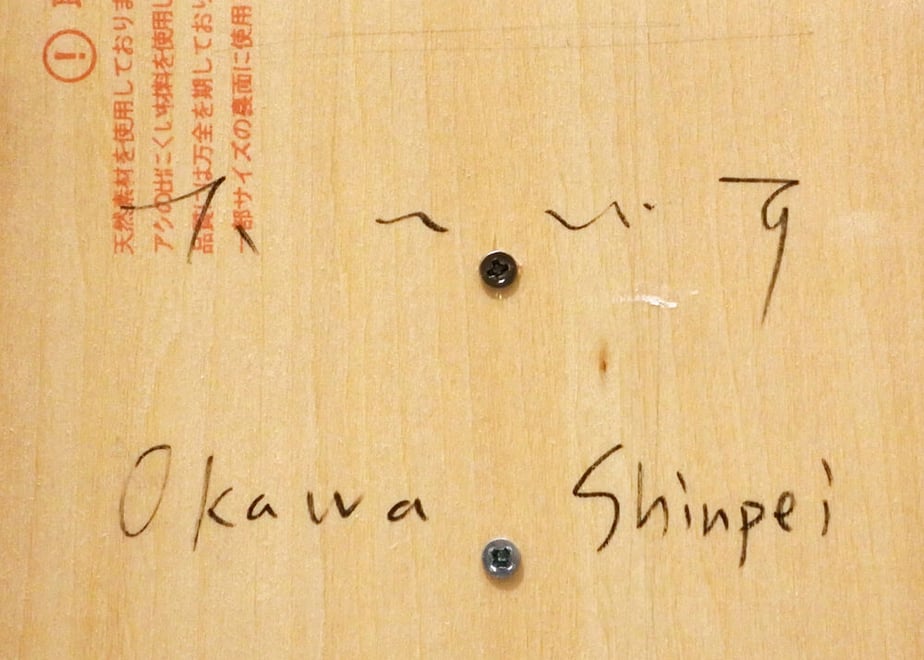 天然素材を使用しておりま
アクの出にくい材料を使用し
品質には万全を期しており
一部サイズの裏面に使用
Okawa Shinpei